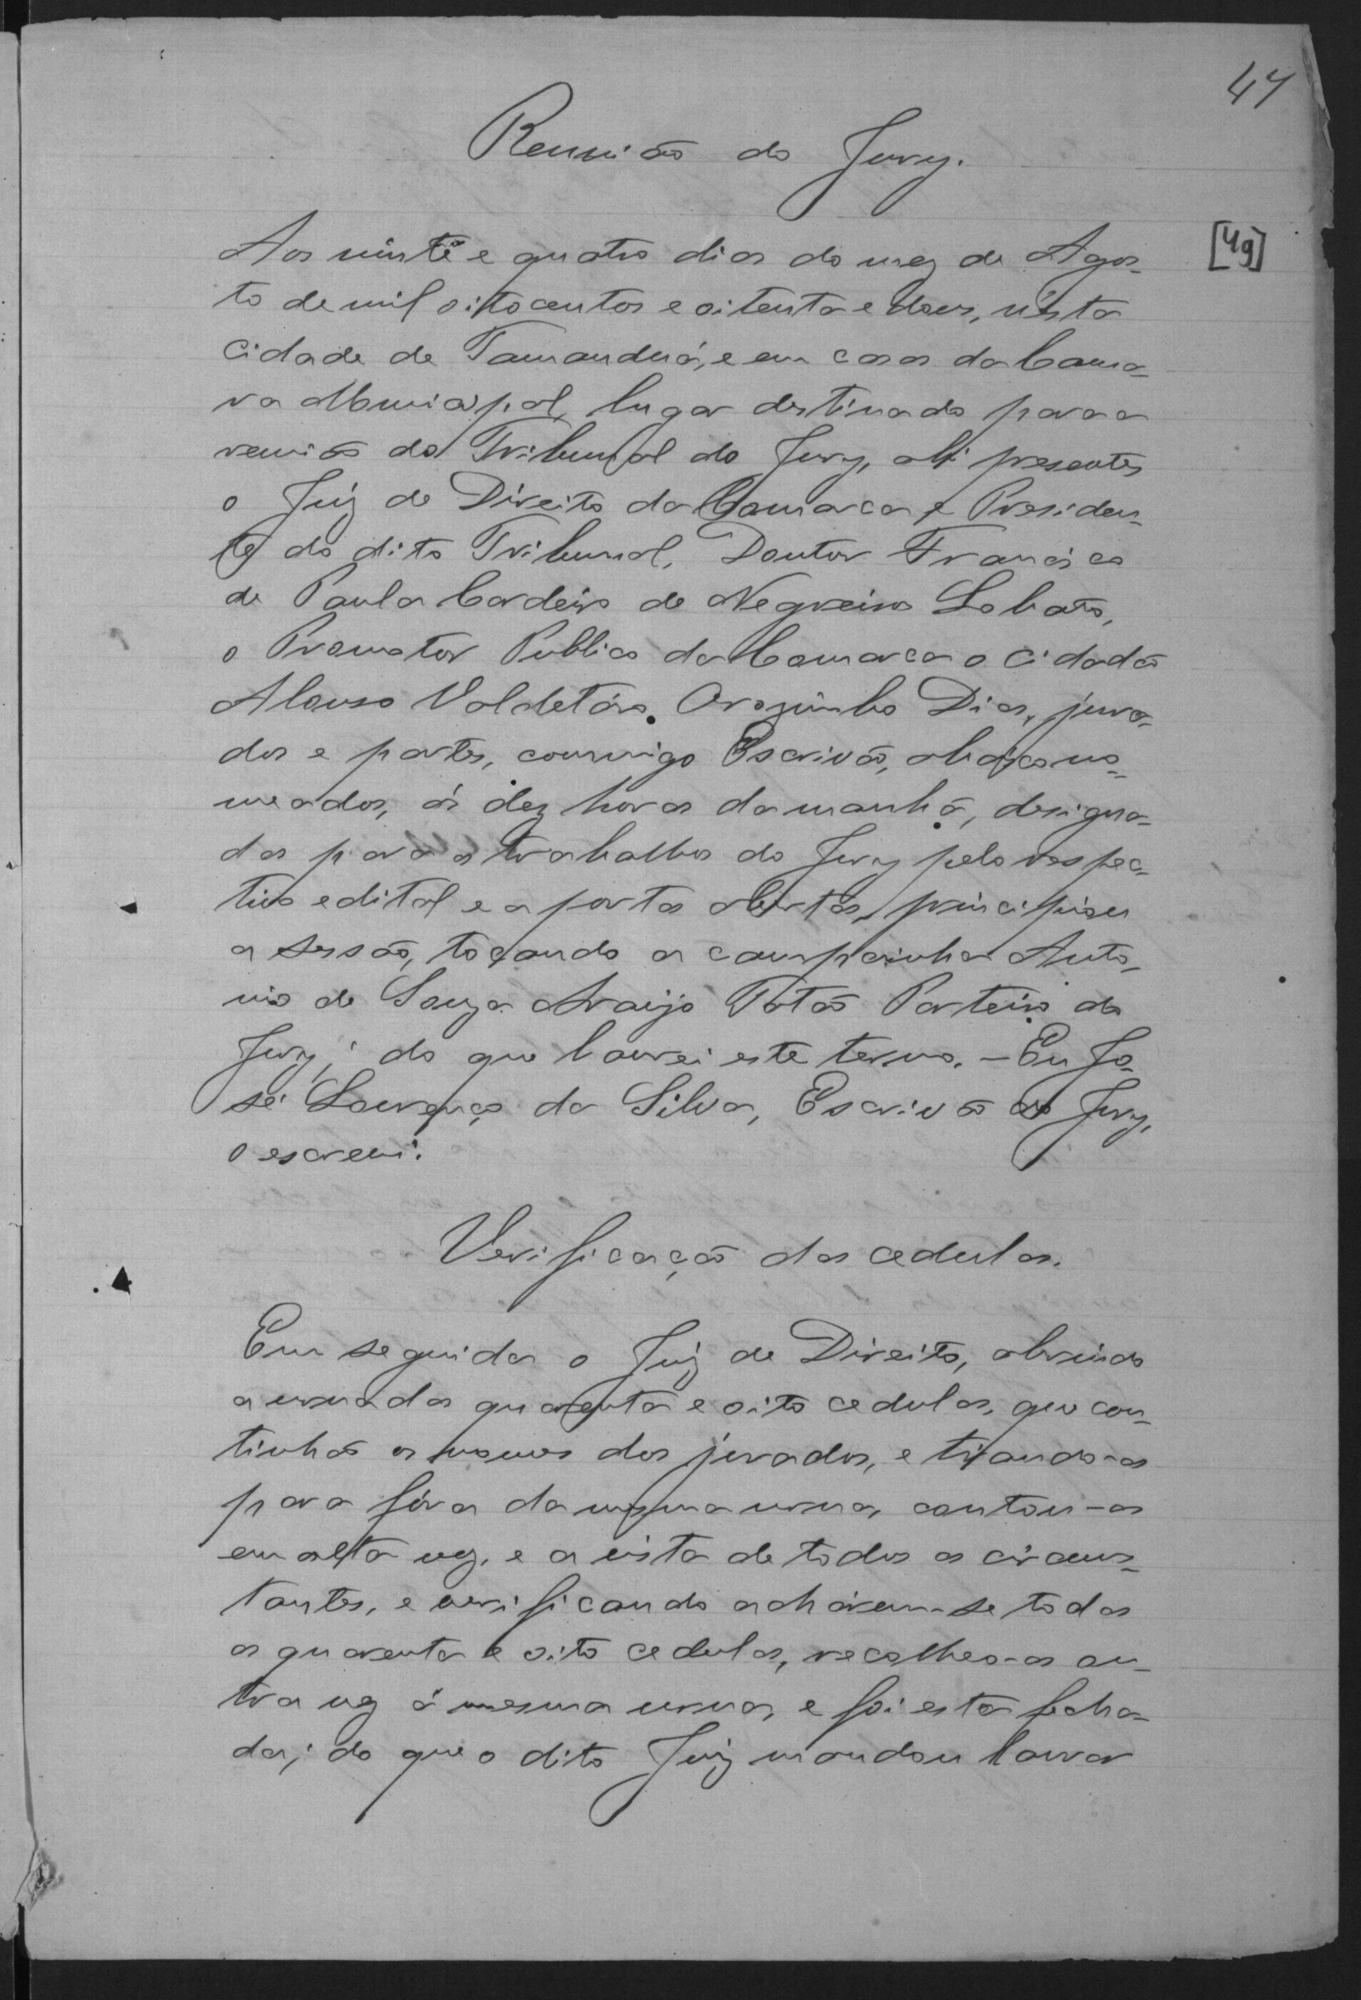 47
Reunião do Jury.
[49]
Aos vinte e quatro dias do mez de Agos-
to de mil oitocentos e oitenta e dous, n'esta
cidade de Tamanduá, e em casa da Cama-
ra Municipal, lugar destinado para a
reunião do Tribunal do Jury, ahi presentes
o Juiz de Direito da Comarca e Presiden-
te do dito Tribunal, Doutor Francisco
de Paula Cordeiro de Negreiros Lobato,
o Promotor Publico da Comarca o cidadão
Alonso Valdetáro Orozimbo Dias, jura-
dos e partes, commigo Escrivão, abaixo no-
meados, ás dez horas da manhã, designa-
das para os trabalhos do Jury pelo respec-
tivo edital e a portas abertas, principiou
a sessão, tocando a campainha Anto-
nio de Souza Araujo Porteiro do
Jury; do que lavrei este termo. - Eu Jo-
sé Lourenço da Silva, Escrivão do Jury,
o escrevi.
Verificação das cedulas.
Em seguida o Juiz de Direito, abrindo
a urna das quarenta e oito cedulas, que con-
tinhão os nomes dos jurados, e tirando-as
para fóra da mesma urna, contou-as
em alta voz, e a vista de todos os circuns-
tantes, e verificando acharem-se todas
as quarenta e oito cedulas, recolheo-as ou-
tra vez á mesma urna, e foi esta fecha-
da; do que o dito Juiz mandou lavrar